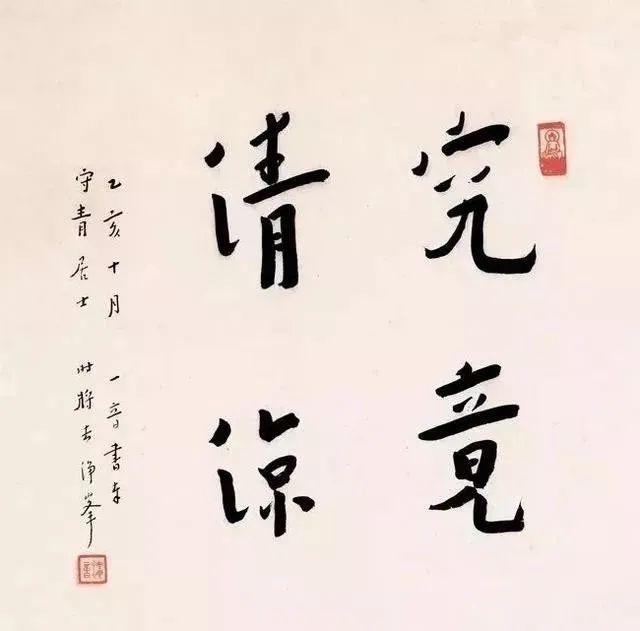 究竟
清涼
乙亥十月 一音書奉
守青居士 時將去淨峯